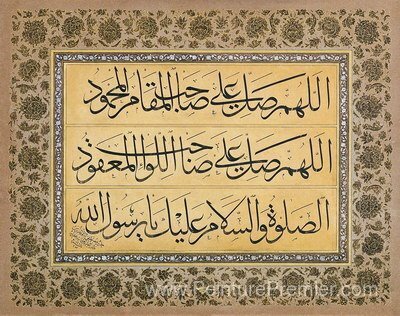 اللهم صل على صاحب المقام المحمود
اللهم صل على صاحب اللواء المعقود
الصلوة والسلام عليك يا رسول الله
www.PainturePremier.com